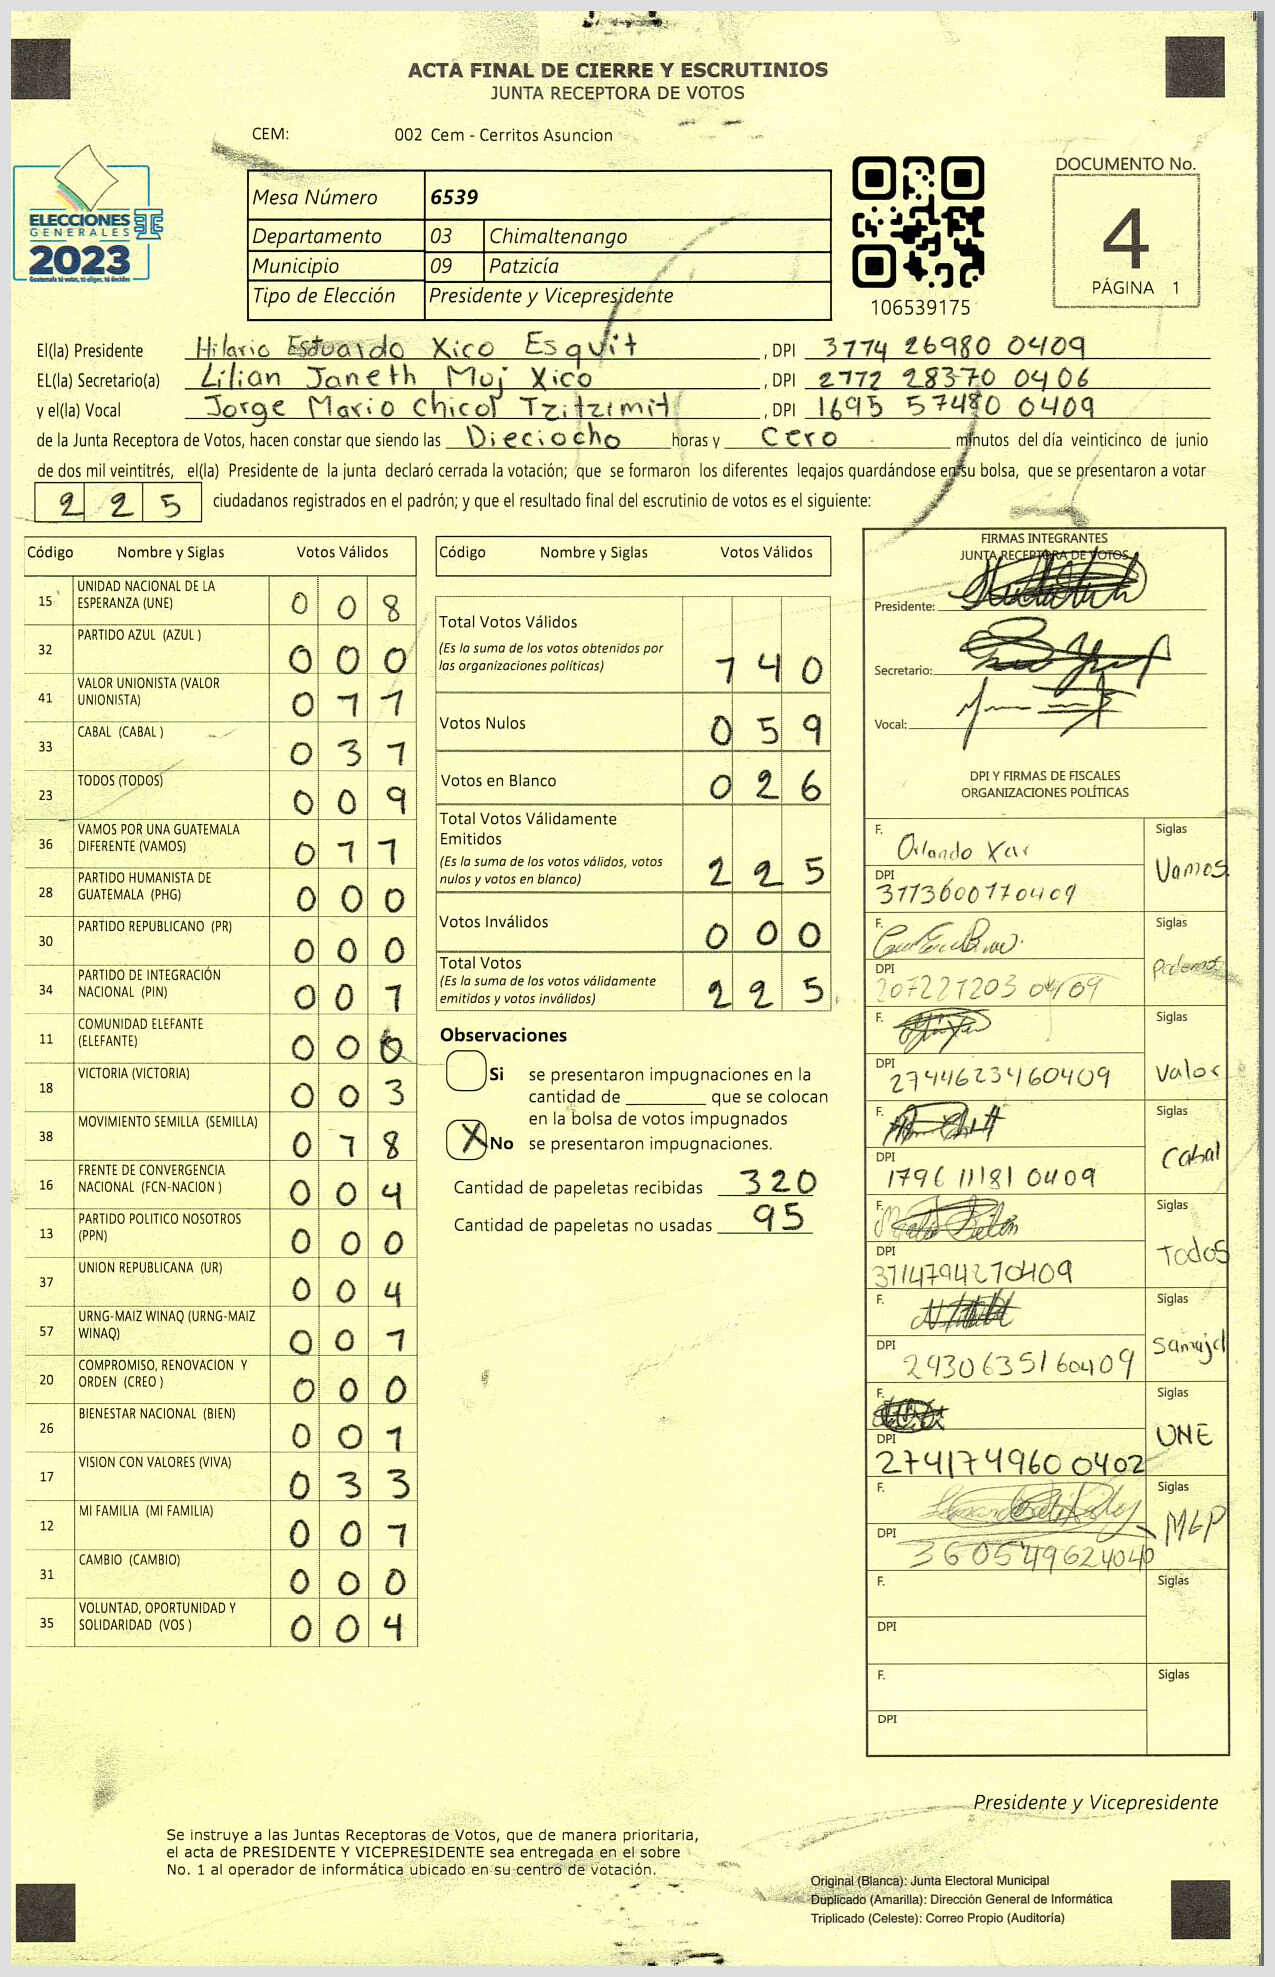 ACTA FINAL DE CIERRE Y ESCRUTINIOS
JUNTA RECEPTORA DE VOTOS
CEM: 002 Cem - Cerritos Asuncion
ELECCIONES
GENERALES
2023
Guatemala tú votas, tú eliges, tú decides
Mesa Número 6539
Departamento 03 Chimaltenango
Municipio 09 Patzicía
Tipo de Elección Presidente y Vicepresidente
106539175
DOCUMENTO No.
4
PÁGINA 1
El(la) Presidente Hilario Estuardo Xico Esquit , DPI 3774 26980 0409
EL(la) Secretario(a) Lilian Janeth Muj Xico , DPI 2772 28370 0406
y el(la) Vocal Jorge Mario Chicol Tzitzimit , DPI 1695 57480 0409
de la Junta Receptora de Votos, hacen constar que siendo las Dieciocho horas y Cero minutos del día veinticinco de junio
de dos mil veintitrés, el(la) Presidente de la junta declaró cerrada la votación; que se formaron los diferentes legajos guardándose en su bolsa, que se presentaron a votar
225 ciudadanos registrados en el padrón; y que el resultado final del escrutinio de votos es el siguiente:
Código Nombre y Siglas Votos Válidos
15 UNIDAD NACIONAL DE LA ESPERANZA (UNE) 008
32 PARTIDO AZUL (AZUL ) 000
41 VALOR UNIONISTA (VALOR UNIONISTA) 011
33 CABAL (CABAL ) 031
23 TODOS (TODOS) 009
36 VAMOS POR UNA GUATEMALA DIFERENTE (VAMOS) 011
28 PARTIDO HUMANISTA DE GUATEMALA (PHG) 000
30 PARTIDO REPUBLICANO (PR) 000
34 PARTIDO DE INTEGRACIÓN NACIONAL (PIN) 001
11 COMUNIDAD ELEFANTE (ELEFANTE) 000
18 VICTORIA (VICTORIA) 003
38 MOVIMIENTO SEMILLA (SEMILLA) 018
16 FRENTE DE CONVERGENCIA NACIONAL (FCN-NACION ) 004
13 PARTIDO POLITICO NOSOTROS (PPN) 000
37 UNION REPUBLICANA (UR) 004
57 URNG-MAIZ WINAQ (URNG-MAIZ WINAQ) 001
20 COMPROMISO, RENOVACION Y ORDEN (CREO ) 000
26 BIENESTAR NACIONAL (BIEN) 001
17 VISION CON VALORES (VIVA) 033
12 MI FAMILIA (MI FAMILIA) 001
31 CAMBIO (CAMBIO) 000
35 VOLUNTAD, OPORTUNIDAD Y SOLIDARIDAD (VOS ) 004
Código Nombre y Siglas Votos Válidos
Total Votos Válidos
(Es la suma de los votos obtenidos por
las organizaciones políticas) 140
Votos Nulos 059
Votos en Blanco 026
Total Votos Válidamente
Emitidos
(Es la suma de los votos válidos, votos
nulos y votos en blanco) 225
Votos Inválidos 000
Total Votos
(Es la suma de los votos válidamente
emitidos y votos inválidos) 225
Observaciones
Si se presentaron impugnaciones en la
cantidad de ________ que se colocan
en la bolsa de votos impugnados
X No se presentaron impugnaciones.
Cantidad de papeletas recibidas 320
Cantidad de papeletas no usadas 95
FIRMAS INTEGRANTES
JUNTA RECEPTORA DE VOTOS
Presidente:
Secretario:
Vocal:
DPI Y FIRMAS DE FISCALES
ORGANIZACIONES POLÍTICAS
F. Orlando Xar Siglas Vamos
DPI 3113600170409
F. Siglas Podemos
DPI 207227203 0409
F. Siglas Valor
DPI 2744623460409
F. Siglas Cabal
DPI 1796 11181 0409
F. Siglas Todos
DPI 3714794270409
F. Siglas
DPI 2930635160409
F. Siglas UNE
DPI 274174960 0402
F. Siglas MLP
DPI
F. Siglas
DPI
F. Siglas
DPI
Presidente y Vicepresidente
Se instruye a las Juntas Receptoras de Votos, que de manera prioritaria,
el acta de PRESIDENTE Y VICEPRESIDENTE sea entregada en el sobre
No. 1 al operador de informática ubicado en su centro de votación.
Original (Blanca): Junta Electoral Municipal
Duplicado (Amarilla): Dirección General de Informática
Triplicado (Celeste): Correo Propio (Auditoría)